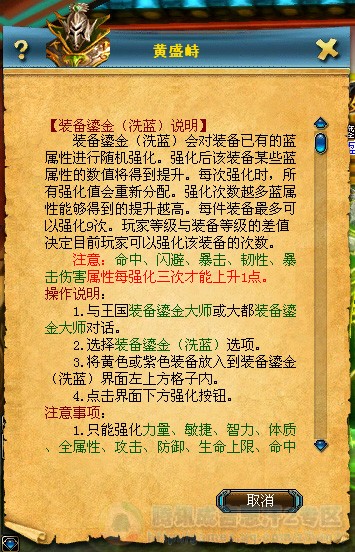 黄盛峙
【装备鎏金（洗蓝）说明】
装备鎏金（洗蓝）会对装备已有的蓝
属性进行随机强化。强化后该装备某些蓝
属性的数值将得到提升。每次强化时，所
有强化值会重新分配。强化次数越多蓝属
性能够得到的提升越高。每件装备最多可
以强化9次。玩家等级与装备等级的差值
决定目前玩家可以强化该装备的次数。
注意：命中、闪避、暴击、韧性、暴
击伤害属性每强化三次才能上升1点。
操作说明：
1.与王国装备鎏金大师或大都装备鎏
金大师对话。
2.选择装备鎏金（洗蓝）选项。
3.将黄色或紫色装备放入到装备鎏金
（洗蓝）界面左上方格子内。
4.点击界面下方强化按钮。
注意事项：
1.只能强化力量、敏捷、智力、体质
、全属性、攻击、防御、生命上限、命中
取消